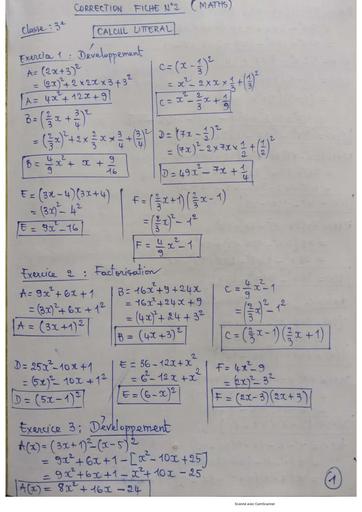 CORRECTION FICHE N°2 (MATHS)
Classe : 3e
CALCUL LITERAL
Exercice 1 : Développement
A = (2x+3)²
= (2x)² + 2×2x×3 + 3²
A = 4x² + 12x + 9
B = (2/3 x + 3/4)²
= (2/3 x)² + 2×2/3 x × 3/4 + (3/4)²
B = 4/9 x² + x + 9/16
C = (x - 1/3)²
= x² - 2×x×1/3 + (1/3)²
C = x² - 2/3 x + 1/9
D = (7x - 1/2)²
= (7x)² - 2×7x×1/2 + (1/2)²
D = 49x² - 7x + 1/4
E = (3x-4)(3x+4)
= (3x)² - 4²
E = 9x² - 16
F = (2/3 x + 1)(2/3 x - 1)
= (2/3 x)² - 1²
F = 4/9 x² - 1
Exercice 2 : Factorisation
A = 9x² + 6x + 1
= (3x)² + 6x + 1²
A = (3x+1)²
B = 16x² + 9 + 24x
= 16x² + 24x + 9
= (4x)² + 24 + 3²
B = (4x+3)²
C = 4/9 x² - 1
= (2/3 x)² - 1²
C = (2/3 x - 1)(2/3 x + 1)
D = 25x² - 10x + 1
= (5x)² - 10x + 1²
D = (5x-1)²
E = 36 - 12x + x²
= 6² - 12x + x²
E = (6-x)²
F = 4x² - 9
= (2x)² - 3²
F = (2x-3)(2x+3)
Exercice 3 ; Développement
A(x) = (3x+1)² - (x-5)²
= 9x² + 6x + 1 - [x² - 10x + 25]
= 9x² + 6x + 1 - x² + 10x - 25
A(x) = 8x² + 16x - 24
1
Scanné avec CamScanner